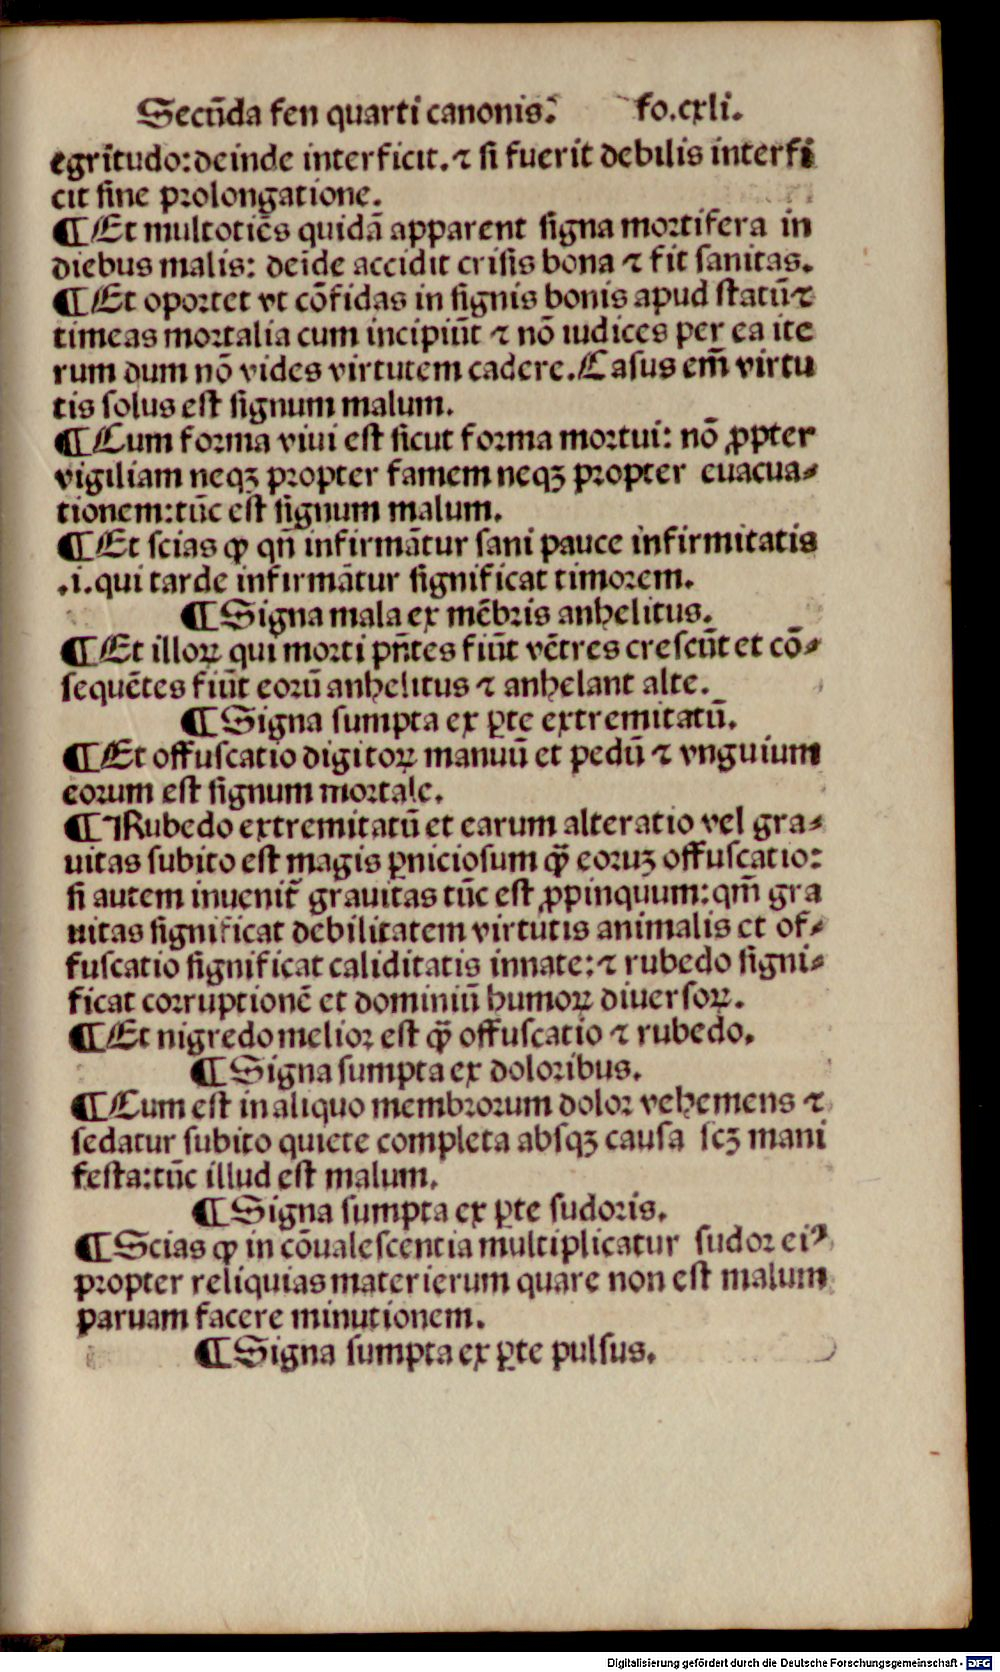 Secūda fen quarti canonis. fo.cxli.
egritudo:deinde interficit.⁊ si fuerit debilis interfi
cit sine prolongatione.
¶Et multotiēs quidā apparent signa mortifera in
diebus malis: deīde accidit crisis bona ⁊ fit sanitas.
¶Et oportet vt cōfidas in signis bonis apud statū⁊
timeas mortalia cum incipiūt ⁊ nō iudices per ea ite
rum dum nō vides virtutem cadere.Casus em̄ virtu
tis solus est signum malum.
¶Cum forma viui est sicut forma mortui: nō ꝓpter
vigiliam neqꝫ propter famem neqꝫ propter euacua⸗
tionem:tūc est signum malum.
¶Et scias ꝙ qn̄ infirmātur sani pauce infirmitatis
.i.qui tarde infirmātur significat timorem.
¶Signa mala ex mēbris anhelitus.
¶Et illoꝝ qui morti pn̄tes fiūt vētres crescūt et cō⸗
sequētes fiūt eorū anhelitus ⁊ anhelant alte.
¶Signa sumpta ex ꝑte extremitatū.
¶Et offuscatio digitoꝝ manuū et pedū ⁊ vnguium
eorum est signum mortale.
¶Rubedo extremitatū et earum alteratio vel gra⸗
uitas subito est magis ꝑniciosum ꝙ̄ eoruꝫ offuscatio:
si autem inuenit̄ grauitas tūc est ꝓpinquum:qm̄ gra
uitas significat debilitatem virtutis animalis et of⸗
fuscatio significat caliditatis innate:⁊ rubedo signi⸗
ficat corruptionē et dominiū humoꝝ diuersoꝝ.
¶Et nigredo melior est ꝙ̄ offuscatio ⁊ rubedo.
¶Signa sumpta ex doloribus.
¶Cum est in aliquo membrorum dolor vehemens ⁊
sedatur subito quiete completa absqꝫ causa scꝫ mani
festa:tūc illud est malum.
¶Signa sumpta ex ꝑte sudoris.
¶Scias ꝙ in cōualescentia multiplicatur sudor eiꝰ
propter reliquias materierum quare non est malum
paruam facere minutionem.
¶Signa sumpta ex ꝑte pulsus.
Digitalisierung gefördert durch die Deutsche Forschungsgemeinschaft - DFG